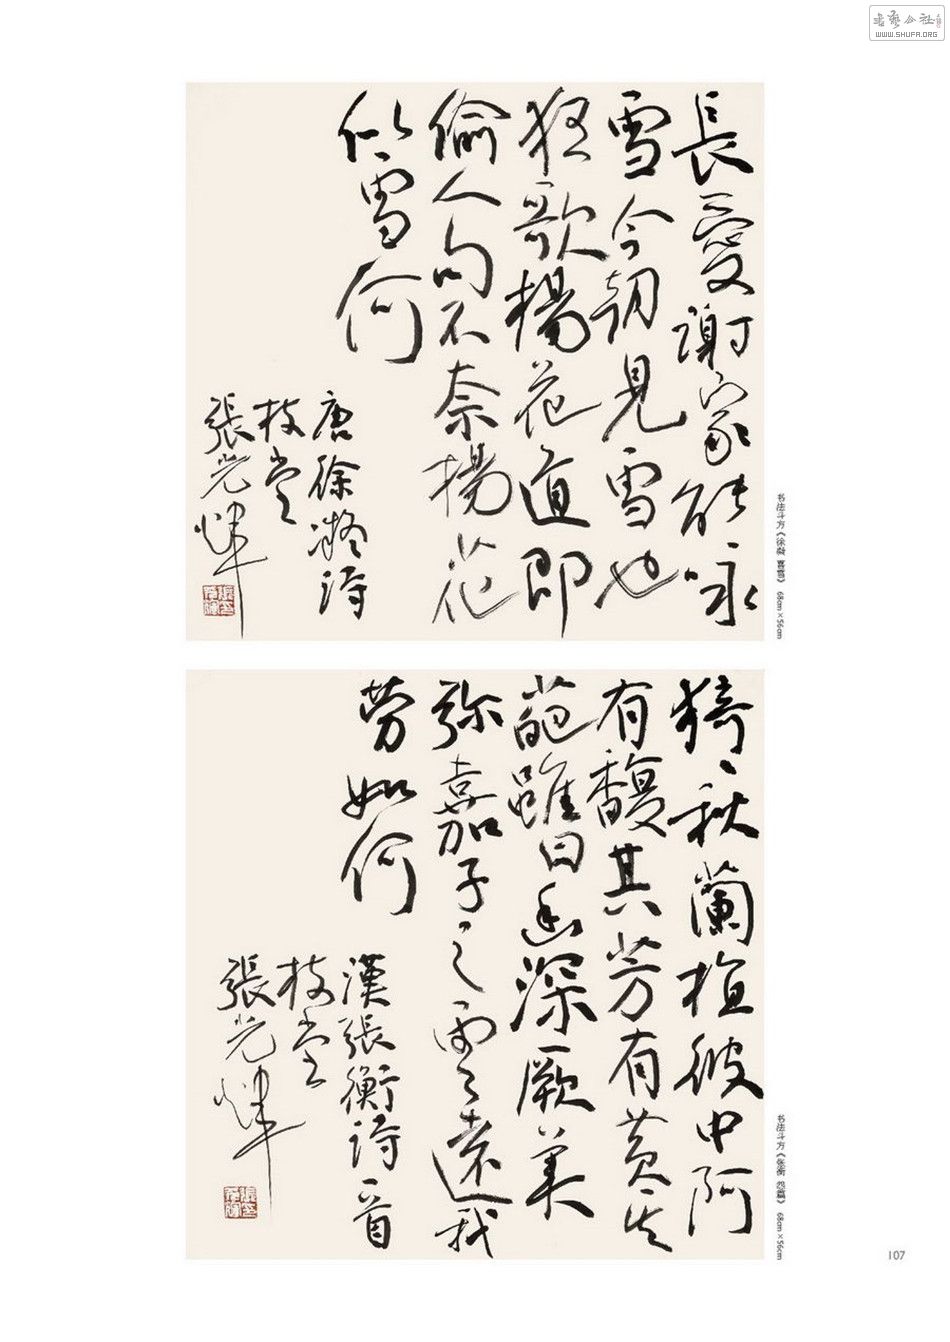 长愛謝家能詠
雪今朝見雪也
狂歌楊花道即
偷人句不奈楊花
似雪何
唐徐凝詩
枝堂
張光
书法斗方《徐凝 喜雪》 68cm×56cm
猗猗秋蘭植彼中阿
有馥其芳有黃其
葩雖曰幽深厥美
弥嘉子之雲遠我
勞如何
漢張衡詩一首
枝堂
張光
书法斗方《张衡 怨篇》 68cm×56cm
107
书艺公社
WWW.SHUFA.ORG